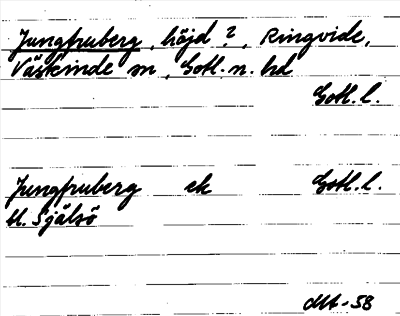 Jungfruberg, höjd ?, Ringvide,
Väskinde sn, Gotl. n. hd
Gotl. l.
Jungfruberg ek Gotl. l.
St. Själsö